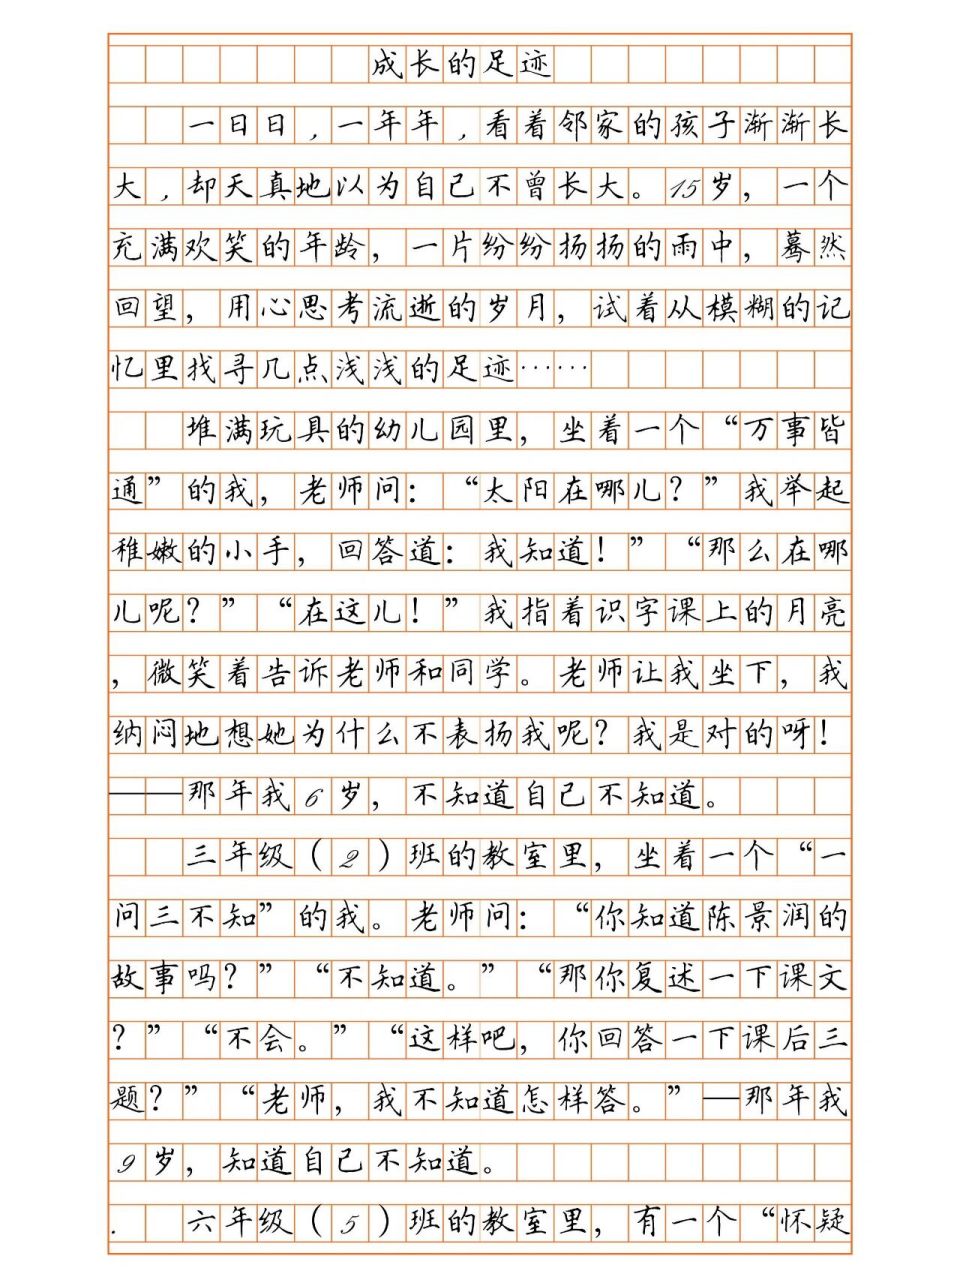 成长的足迹
一日日，一年年，看着邻家的孩子渐渐长
大，却天真地以为自己不曾长大。15岁，一个
充满欢笑的年龄，一片纷纷扬扬的雨中，蓦然
回望，用心思考流逝的岁月，试着从模糊的记
忆里找寻几点浅浅的足迹……
堆满玩具的幼儿园里，坐着一个“万事皆
通”的我，老师问：“太阳在哪儿？”我举起
稚嫩的小手，回答道：我知道！”“那么在哪
儿呢？”“在这儿！”我指着识字课上的月亮
，微笑着告诉老师和同学。老师让我坐下，我
纳闷地想她为什么不表扬我呢？我是对的呀！
——那年我6岁，不知道自己不知道。
三年级（2）班的教室里，坐着一个“一
问三不知”的我。老师问：“你知道陈景润的
故事吗？”“不知道。”“那你复述一下课文
？”“不会。”“这样吧，你回答一下课后三
题？”“老师，我不知道怎样答。”—那年我
9岁，知道自己不知道。
. 六年级（5）班的教室里，有一个“怀疑